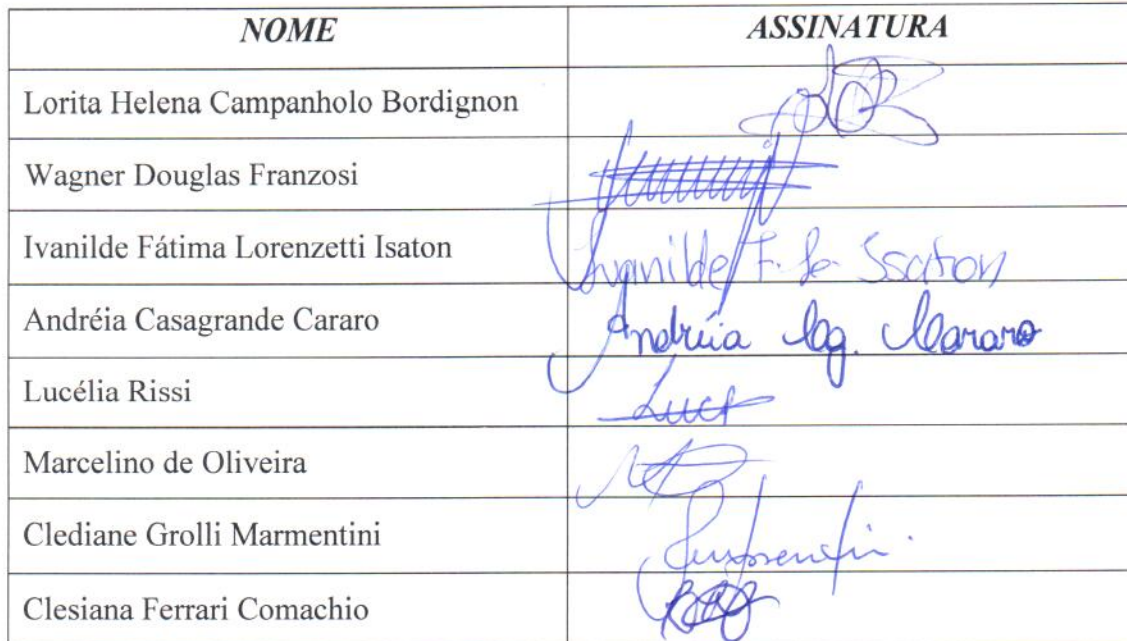 NOME ASSINATURA
Lorita Helena Campanholo Bordignon
Wagner Douglas Franzosi
Ivanilde Fátima Lorenzetti Isaton Ivanilde F. Issaton
Andréia Casagrande Cararo Andréia Cararo
Lucélia Rissi
Marcelino de Oliveira
Clediane Grolli Marmentini
Clesiana Ferrari Comachio